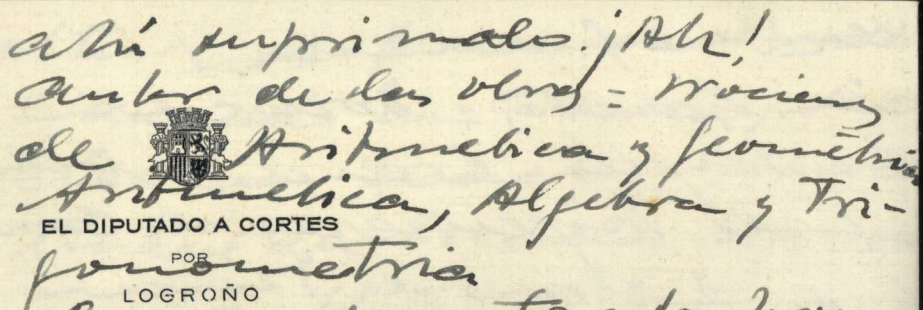 ahí suprimalo. ¡Ah!
Autor de las obras = Nociones
de Aritmetica y Geometria
Aritmetica, Algebra y Tri-
EL DIPUTADO A CORTES
gonometria
POR
LOGROÑO